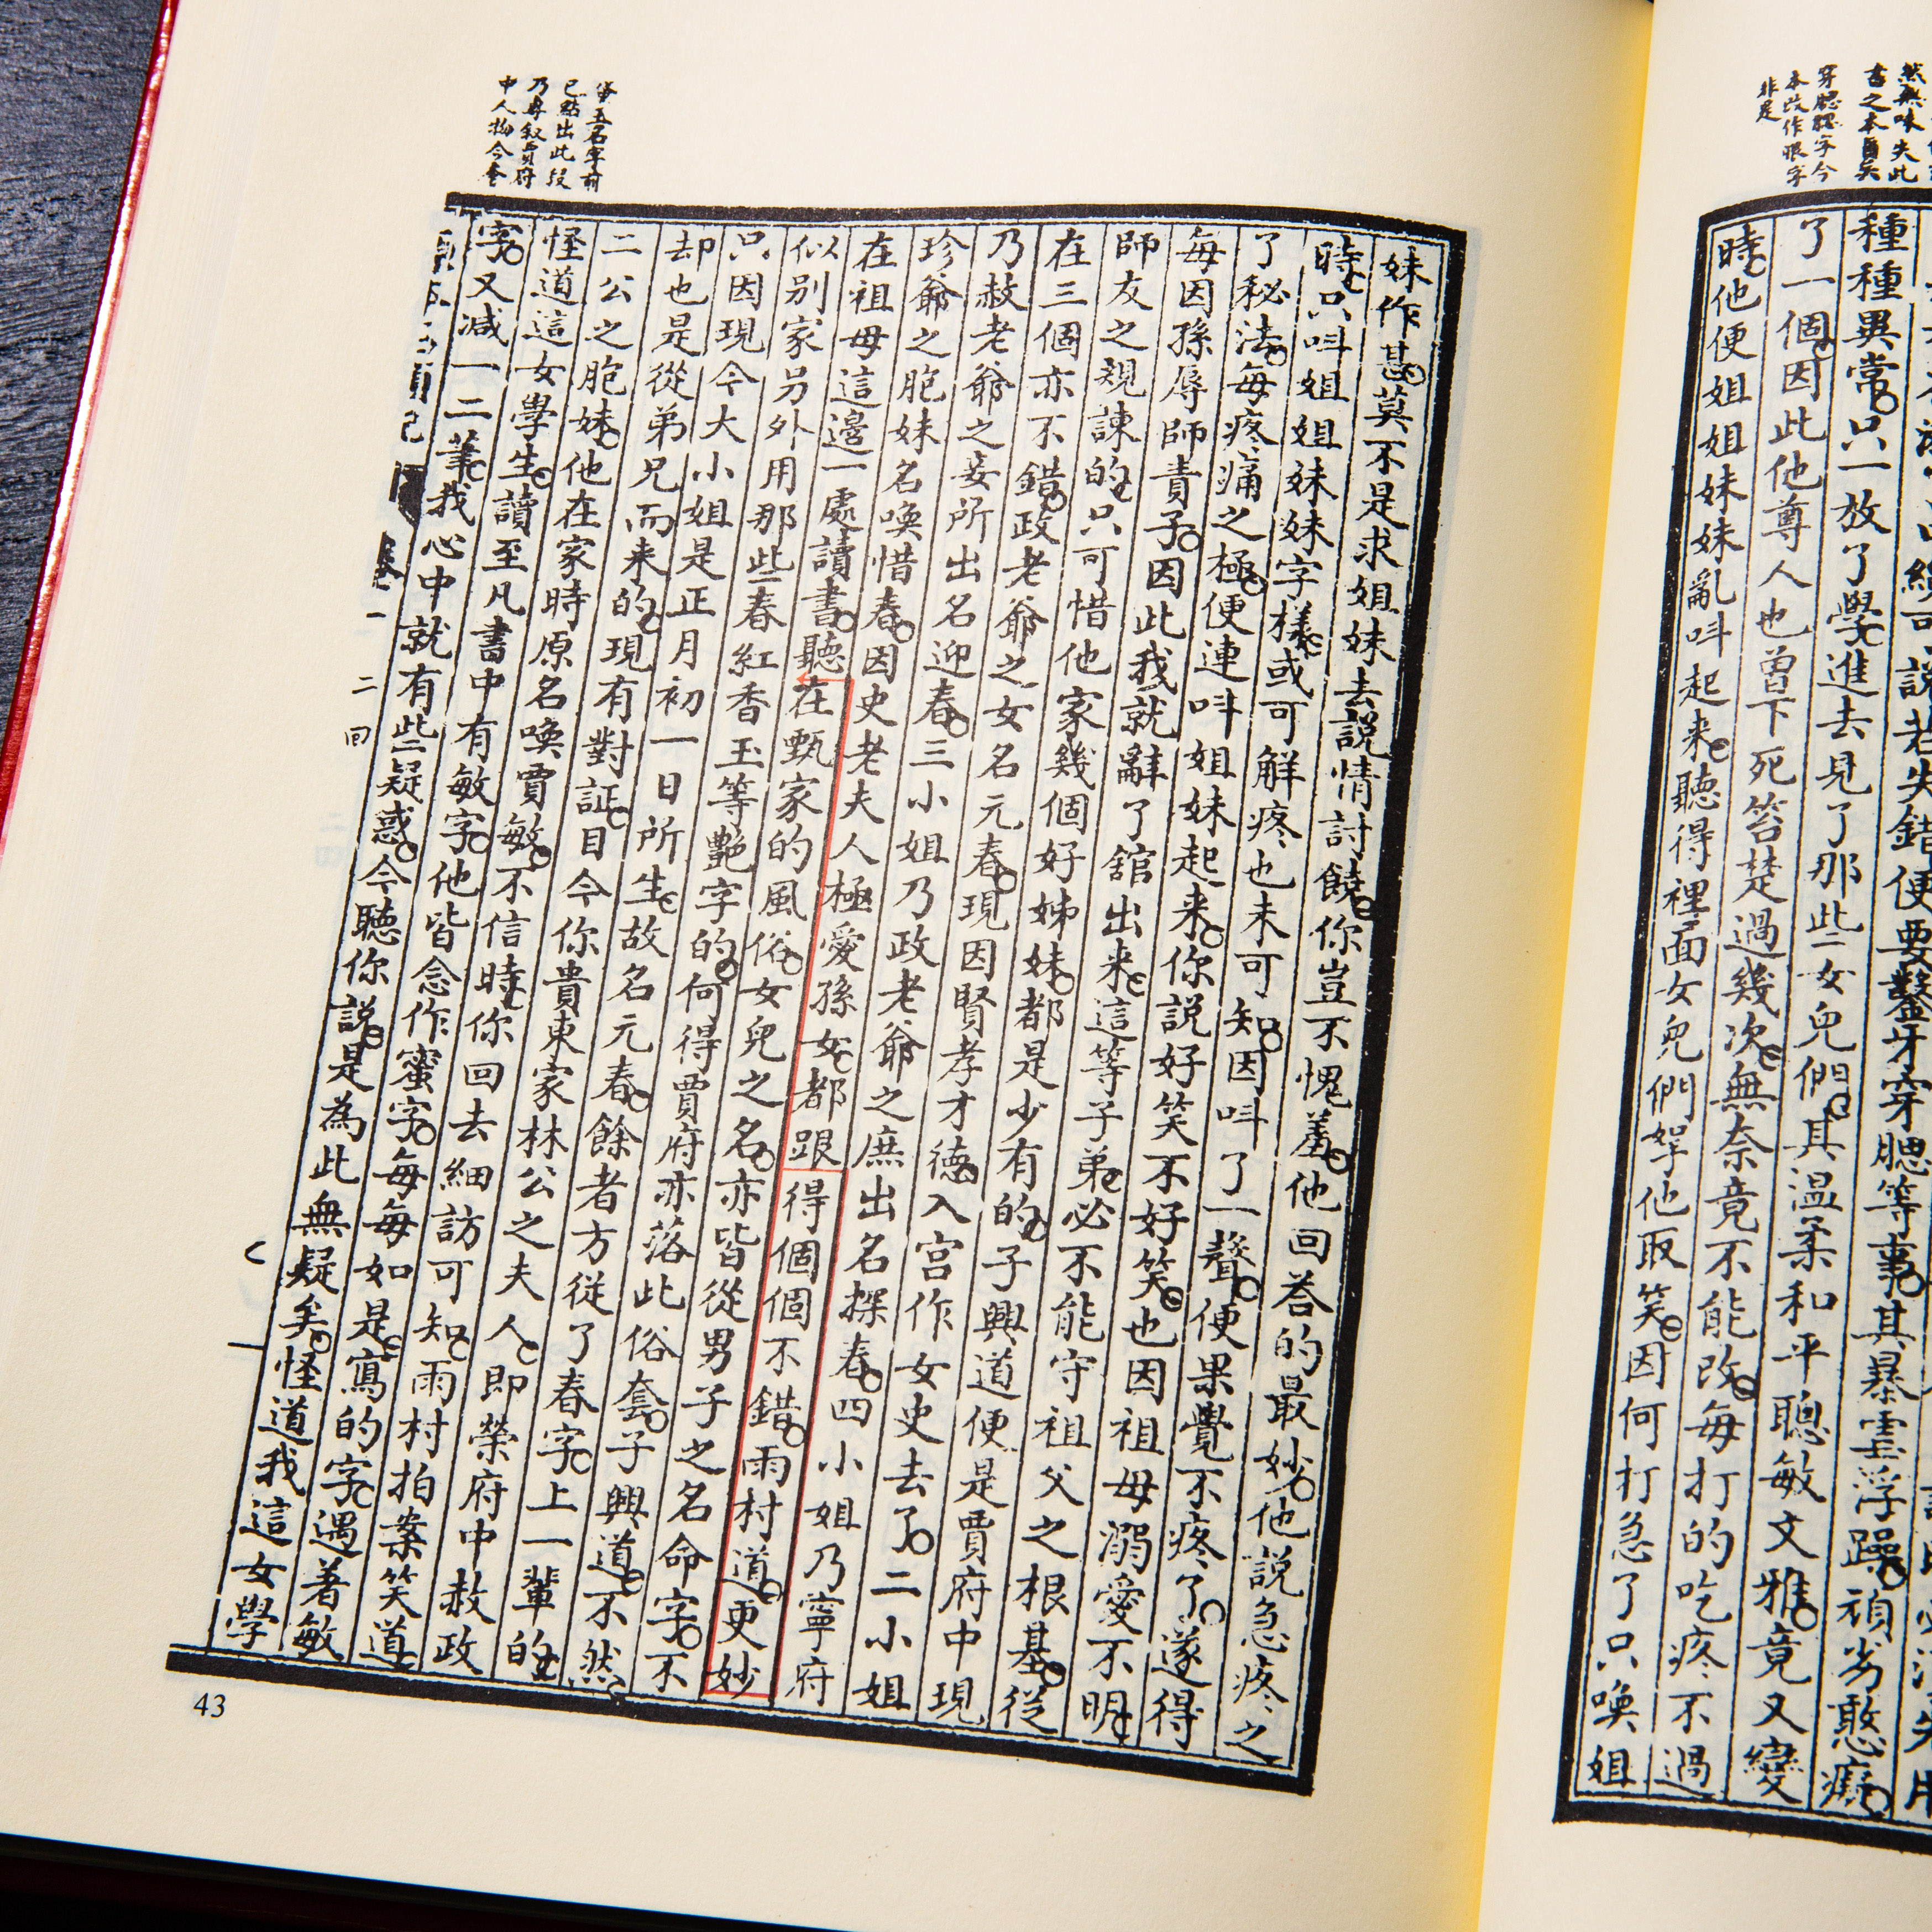 然無味失此
書之本旨矣
穿腮腮字今
本改作眼字
非是
説若失錯便要鑿牙穿腮等事其暴虐浮躁頑劣憨癡
種種異常只一放了學進去見了那些女兒們其温柔和平聰敏文雅竟又變
了一個因此他尊人也曾下死笞楚過幾次無奈竟不能改每打的吃疼不過
時他便姐姐妹妹亂呌起来聽得裡面女兒們拏他取笑因何打急了只喚姐
五名字前
已點出此段
乃專叙賈府
中人物今套
妹作甚莫不是求姐妹去説情討饒你豈不愧羞他回荅的最妙他説急疼之
時只呌姐姐妹妹字樣或可解疼也未可知因呌了一聲便果覺不疼了遂得
了秘法每疼痛之極便連呌姐妹起来你説好笑不好笑也因祖母溺愛不明
每因孫辱師責子因此我就辭了館出来這等子弟必不能守祖父之根基從
師友之規諫的只可惜他家幾個好姊妹都是少有的子興道便是賈府中現
在三個亦不錯政老爺之女名元春現因賢孝才德入宮作女史去了二小姐
乃赦老爺之妾所出名迎春三小姐乃政老爺之庶出名探春四小姐乃寧府
珍爺之胞妹名喚惜春因史老夫人極愛孫女都跟得個個不錯雨村道更妙
在祖母這邊一處讀書聽在甄家的風俗女兒之名亦皆從男子之名命字不
似別家另外用那些春紅香玉等艷字的何得賈府亦落此俗套子興道不然
只因現今大小姐是正月初一日所生故名元春餘者方從了春字上一輩的
却也是從弟兄而来的現有對証目今你貴東家林公之夫人即榮府中赦政
二公之胞妹他在家時原名喚賈敏不信時你回去細訪可知雨村拍案笑道
怪道這女學生讀至凡書中有敏字他皆念作蜜字每每如是寫的字遇着敏
字又減一二筆我心中就有些疑惑今聽你説是為此無疑矣怪道我這女學
卷一
二回
43